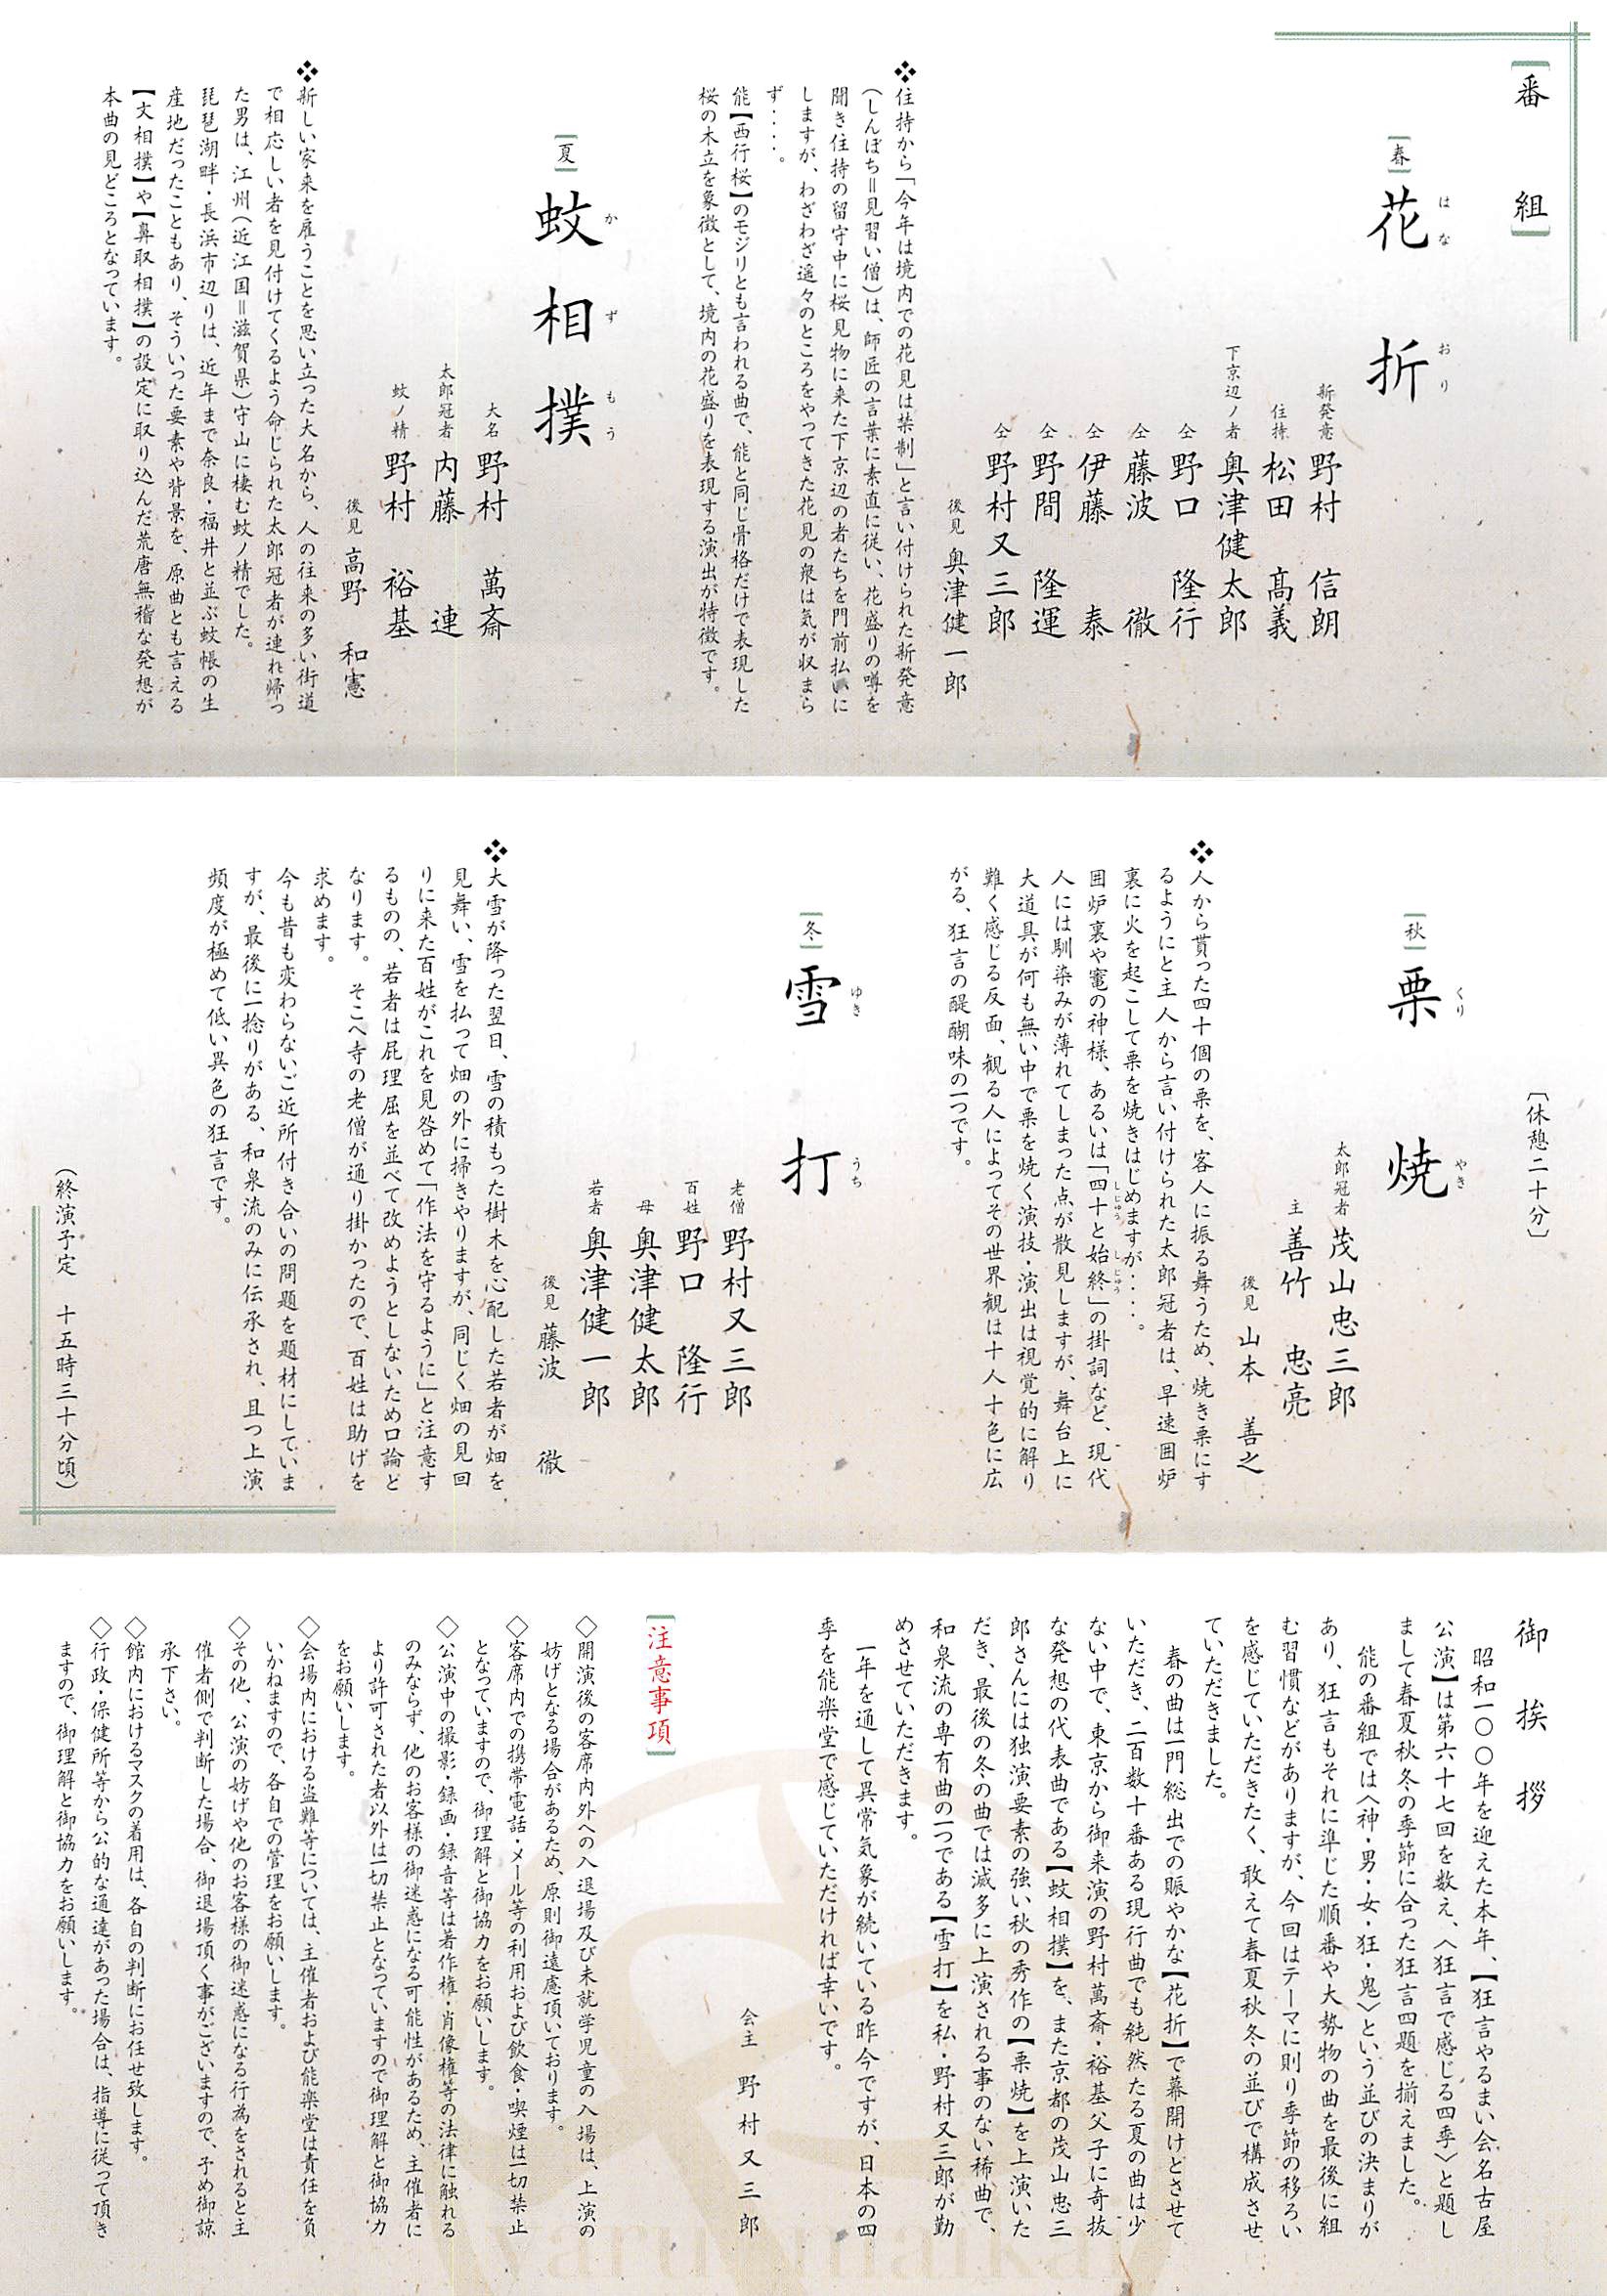 番組
春
花折
はなおり
新発意 野村 信朗
住持 松田 髙義
下京辺ノ者 奥津健太郎
仝 野口 隆行
仝 藤波 徹
仝 伊藤 泰
仝 野間 隆運
仝 野村又三郎
後見 奥津健一郎
❖住持から「今年は境内での花見は禁制」と言い付けられた新発意
(しんぼち=見習い僧)は、師匠の言葉に素直に従い、花盛りの噂を
聞き住持の留守中に桜見物に来た下京辺の者たちを門前払いに
しますが、わざわざ遥々のところをやってきた花見の衆は気が収まら
ず‥‥。
能【西行桜】のモジリとも言われる曲で、能と同じ骨格だけで表現した
桜の木立を象徴として、境内の花盛りを表現する演出が特徴です。
夏
蚊相撲
かずもう
大名 野村 萬斎
太郎冠者 内藤 連
蚊ノ精 野村 裕基
後見 高野 和憲
❖新しい家来を雇うことを思い立った大名から、人の往来の多い街道
で相応しい者を見付けてくるよう命じられた太郎冠者が連れ帰っ
た男は、江州(近江国=滋賀県)守山に棲む蚊ノ精でした。
琵琶湖畔・長浜市辺りは、近年まで奈良・福井と並ぶ蚊帳の生
産地だったこともあり、そういった要素や背景を、原曲とも言える
【文相撲】や【鼻取相撲】の設定に取り込んだ荒唐無稽な発想が
本曲の見どころとなっています。
〔休憩二十分〕
秋
栗焼
くりやき
太郎冠者 茂山忠三郎
主 善竹 忠亮
後見 山本 善之
❖人から貰った四十個の栗を、客人に振る舞うため、焼き栗にす
るようにと主人から言い付けられた太郎冠者は、早速囲炉
裏に火を起こして栗を焼きはじめますが‥‥。
囲炉裏や竃の神様、あるいは「四十と始終」の掛詞など、現代
しじゅう しじゅう
人には馴染みが薄れてしまった点が散見しますが、舞台上に
大道具が何も無い中で栗を焼く演技・演出は視覚的に解り
難く感じる反面、観る人によってその世界観は十人十色に広
がる、狂言の醍醐味の一つです。
冬
雪打
ゆきうち
老僧 野村又三郎
百姓 野口 隆行
母 奥津健太郎
若者 奥津健一郎
後見 藤波 徹
❖大雪が降った翌日、雪の積もった樹木を心配した若者が畑を
見舞い、雪を払って畑の外に掃きやりますが、同じく畑の見回
りに来た百姓がこれを見咎めて「作法を守るように」と注意す
るものの、若者は屁理屈を並べて改めようとしないため口論と
なります。そこへ寺の老僧が通り掛かったので、百姓は助けを
求めます。
今も昔も変わらないご近所付き合いの問題を題材にしていま
すが、最後に一捻りがある、和泉流のみに伝承され、且つ上演
頻度が極めて低い異色の狂言です。
(終演予定 十五時三十分頃)
御挨拶
昭和一〇〇年を迎えた本年、【狂言やるまい会名古屋
公演】は第六十七回を数え、〈狂言で感じる四季〉と題し
まして春夏秋冬の季節に合った狂言四題を揃えました。
能の番組では〈神・男・女・狂・鬼〉という並びの決まりが
あり、狂言もそれに準じた順番や大勢物の曲を最後に組
む習慣などがありますが、今回はテーマに則り季節の移ろい
を感じていただきたく、敢えて春夏秋冬の並びで構成させ
ていただきました。
春の曲は一門総出での賑やかな【花折】で幕開けとさせて
いただき、二百数十番ある現行曲でも純然たる夏の曲は少
ない中で、東京から御来演の野村萬斎・裕基父子に奇抜
な発想の代表曲である【蚊相撲】を、また京都の茂山忠三
郎さんには独演要素の強い秋の秀作の【栗焼】を上演いた
だき、最後の冬の曲では滅多に上演される事のない稀曲で、
和泉流の専有曲の一つである【雪打】を私・野村又三郎が勤
めさせていただきます。
一年を通して異常気象が続いている昨今ですが、日本の四
季を能楽堂で感じていただければ幸いです。
会主 野村又三郎
注意事項
◇開演後の客席内外への入退場及び未就学児童の入場は、上演の
妨げとなる場合があるため、原則御遠慮頂いております。
◇客席内での携帯電話・メール等の利用および飲食・喫煙は一切禁止
となっていますので、御理解と御協力をお願いします。
◇公演中の撮影・録画・録音等は著作権・肖像権等の法律に触れる
のみならず、他のお客様の御迷惑になる可能性があるため、主催者に
より許可された者以外は一切禁止となっていますので御理解と御協力
をお願いします。
◇会場内における盗難等については、主催者および能楽堂は責任を負
いかねますので、各自での管理をお願いします。
◇その他、公演の妨げや他のお客様の御迷惑になる行為をされると主
催者側で判断した場合、御退場頂く事がございますので、予め御諒
承下さい。
◇館内におけるマスクの着用は、各自の判断にお任せ致します。
◇行政・保健所等から公的な通達があった場合は、指導に従って頂き
ますので、御理解と御協力をお願いします。
Yarumaikai